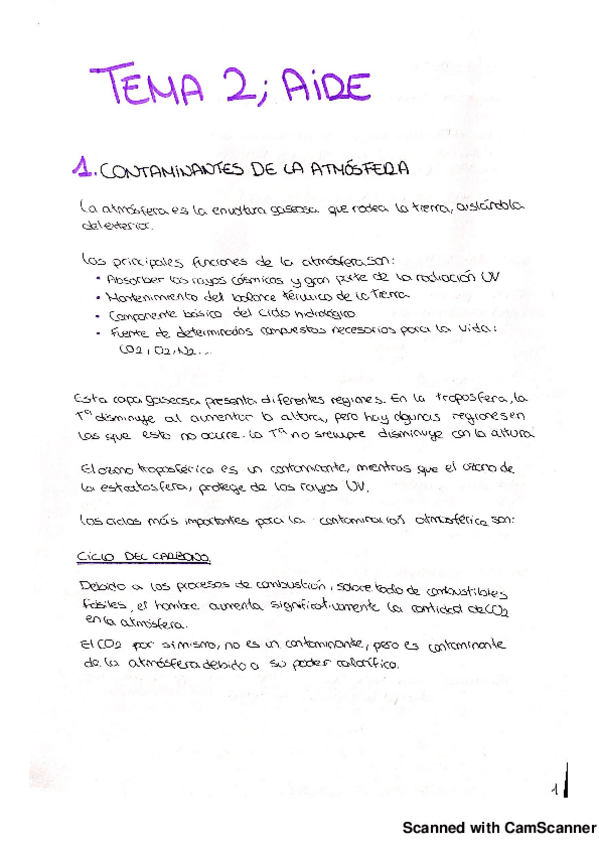 TEMA 2; AIRE
1. CONTAMINANTES DE LA ATMÓSFERA
La atmósfera es la envoltura gaseosa que rodea la tierra, aislándola
del exterior.
Las principales funciones de la atmósfera son:
• Absorber los rayos cósmicos y gran parte de la radiación UV
• Mantenimiento del balance térmico de la Tierra
• Componente básico del ciclo hidrológico
• Fuente de determinados compuestos necesarios para la vida:
CO2, O2, N2...
Esta capa gaseosa presenta diferentes regimes. En la troposfera, la
Tª disminuye al aumentar la altura, pero hay algunas regiones en
las que esto no ocurre. La Tª no siempre disminuye con la altura
El ozono troposférico es un contaminante, mientras que el ozono de
la estratosfera, protege de los rayos UV.
Los ciclos más importantes para la contaminación atmosférica son:
CICLO DEL CARBONO
Debido a los procesos de combustión, sobre todo de combustibles
fósiles, el hombre aumenta significativamente la cantidad de CO2
en la atmósfera.
El CO2 por si mismo, no es un contaminante, pero es contaminante
de la atmósfera debido a su poder calorífico.
1
Scanned with CamScanner